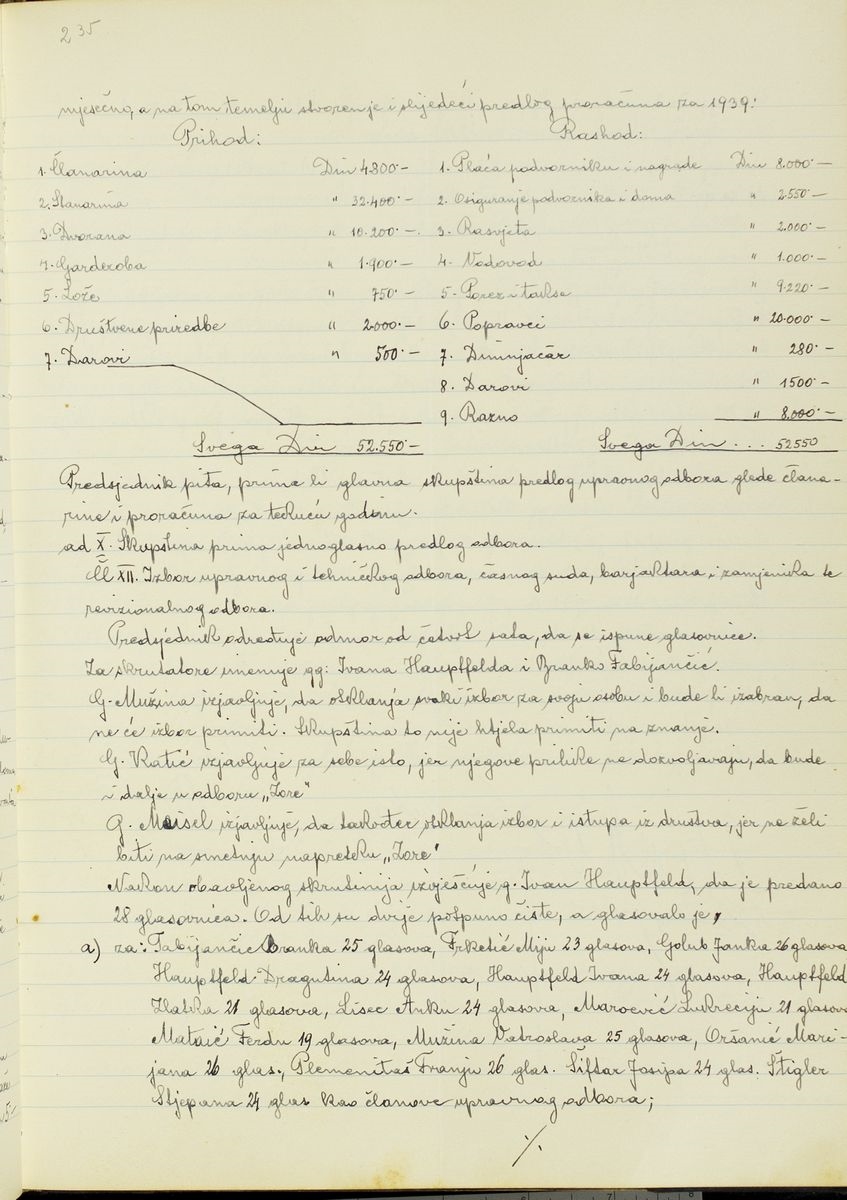 235
mjesečno, a na tom temelju stvoren je i slijedeći predlog proračuna za 1939:
Prihod: Rashod:
1. Članarina Din 4.800·— 1. Plaća podvorniku i nagrade Din 8.000·—
2. Stanarina " 32.400·— 2. Osiguranje podvornika i doma " 2.550·—
3. Dvorana " 10.200·— 3. Rasvjeta " 2.000·—
4. Garderoba " 1.900·— 4. Vodovod " 1.000·—
5. Lože " 750·— 5. Porez i takse " 9.220·—
6. Društvene priredbe " 2.000·— 6. Popravci " 20.000·—
7. Darovi " 500·— 7. Dimnjačar " 280·—
8. Darovi " 1500·—
9. Razno " 8.000·—
Svega Din 52.550·— Svega Din ... 52550
Predsjednik pita, prima li glavna skupština predlog upravnog odbora glede člana-
rine i proračuna za tekuću godinu.
ad X. Skupština prima jednoglasno predlog odbora.
Čl XII. Izbor upravnog i tehničkog odbora, časnog suda, barjaktara i zamjenika te
revizionalnog odbora.
Predsjednik određuje odmor od četvrt sata, da se ispune glasovnice.
Za skrutatore imenuje gg: Ivana Hauptfelda i Branko Fabijančić.
G. Mužina izjavljuje, da otklanja svaki izbor za svoju osobu i bude li izabran, da
ne će izbor primiti. Skupština to nije htjela primiti na znanje.
G. Katić izjavljuje za sebe isto, jer njegove prilike ne dozvoljavaju, da bude
i dalje u odboru „Zore"
G. Meisel izjavljuje, da također otklanja izbor i istupa iz društva, jer ne želi
biti na smetnju napretku „Zore"
Nakon obavljenog skrutinija izvješćuje g. Ivan Hauptfeld, da je predano
28 glasovnica. Od tih su dvije potpuno čiste, a glasovalo je,
a) za: Fabijančić Branka 25 glasova, Frketić Miju 23 glasova, Golub Janka 26 glasova
Hauptfeld Dragutina 24 glasova, Hauptfeld Ivana 24 glasova, Hauptfeld
Zlatka 21 glasova, Lisec Anku 24 glasova, Maroević Lukreciju 21 glasova
Mataić Ferdu 19 glasova, Mužina Vatroslava 25 glasova, Oršanić Mari-
jana 26 glas., Plemenitaš Franju 26 glas. Šiftar Josipa 24 glas. Štigler
Stjepana 24 glas kao članove upravnog odbora;
·/.